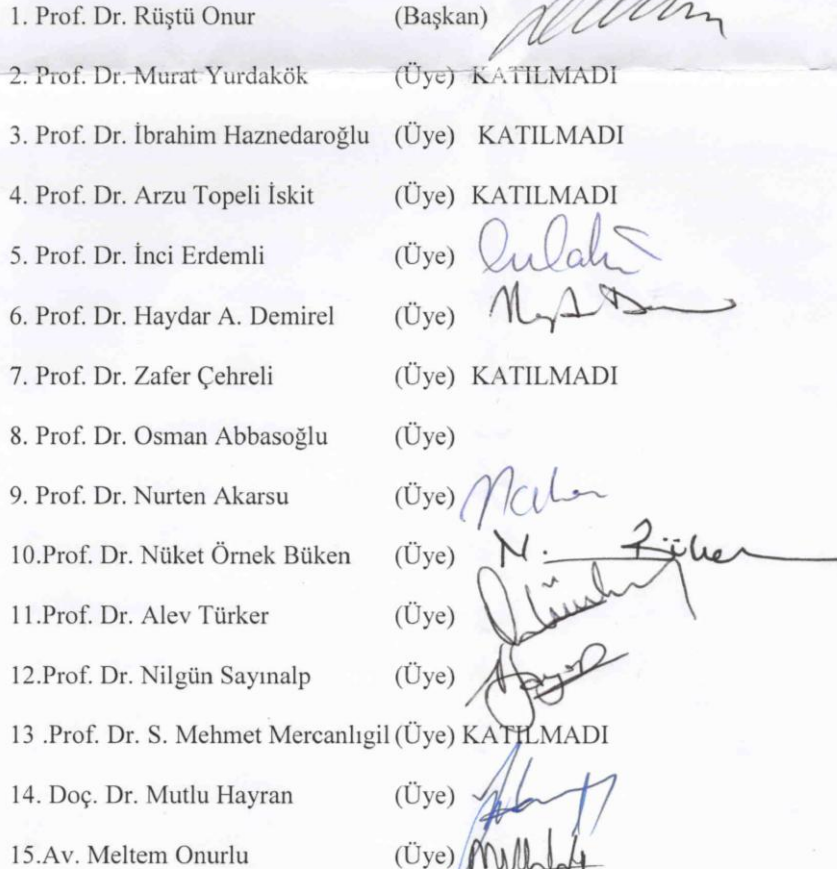 1. Prof. Dr. Rüştü Onur (Başkan)
2. Prof. Dr. Murat Yurdakök (Üye) KATILMADI
3. Prof. Dr. İbrahim Haznedaroğlu (Üye) KATILMADI
4. Prof. Dr. Arzu Topeli İskit (Üye) KATILMADI
5. Prof. Dr. İnci Erdemli (Üye)
6. Prof. Dr. Haydar A. Demirel (Üye)
7. Prof. Dr. Zafer Çehreli (Üye) KATILMADI
8. Prof. Dr. Osman Abbasoğlu (Üye)
9. Prof. Dr. Nurten Akarsu (Üye)
10.Prof. Dr. Nüket Örnek Büken (Üye) N. Büken
11.Prof. Dr. Alev Türker (Üye)
12.Prof. Dr. Nilgün Sayınalp (Üye)
13 .Prof. Dr. S. Mehmet Mercanlıgil (Üye) KATILMADI
14. Doç. Dr. Mutlu Hayran (Üye)
15.Av. Meltem Onurlu (Üye)